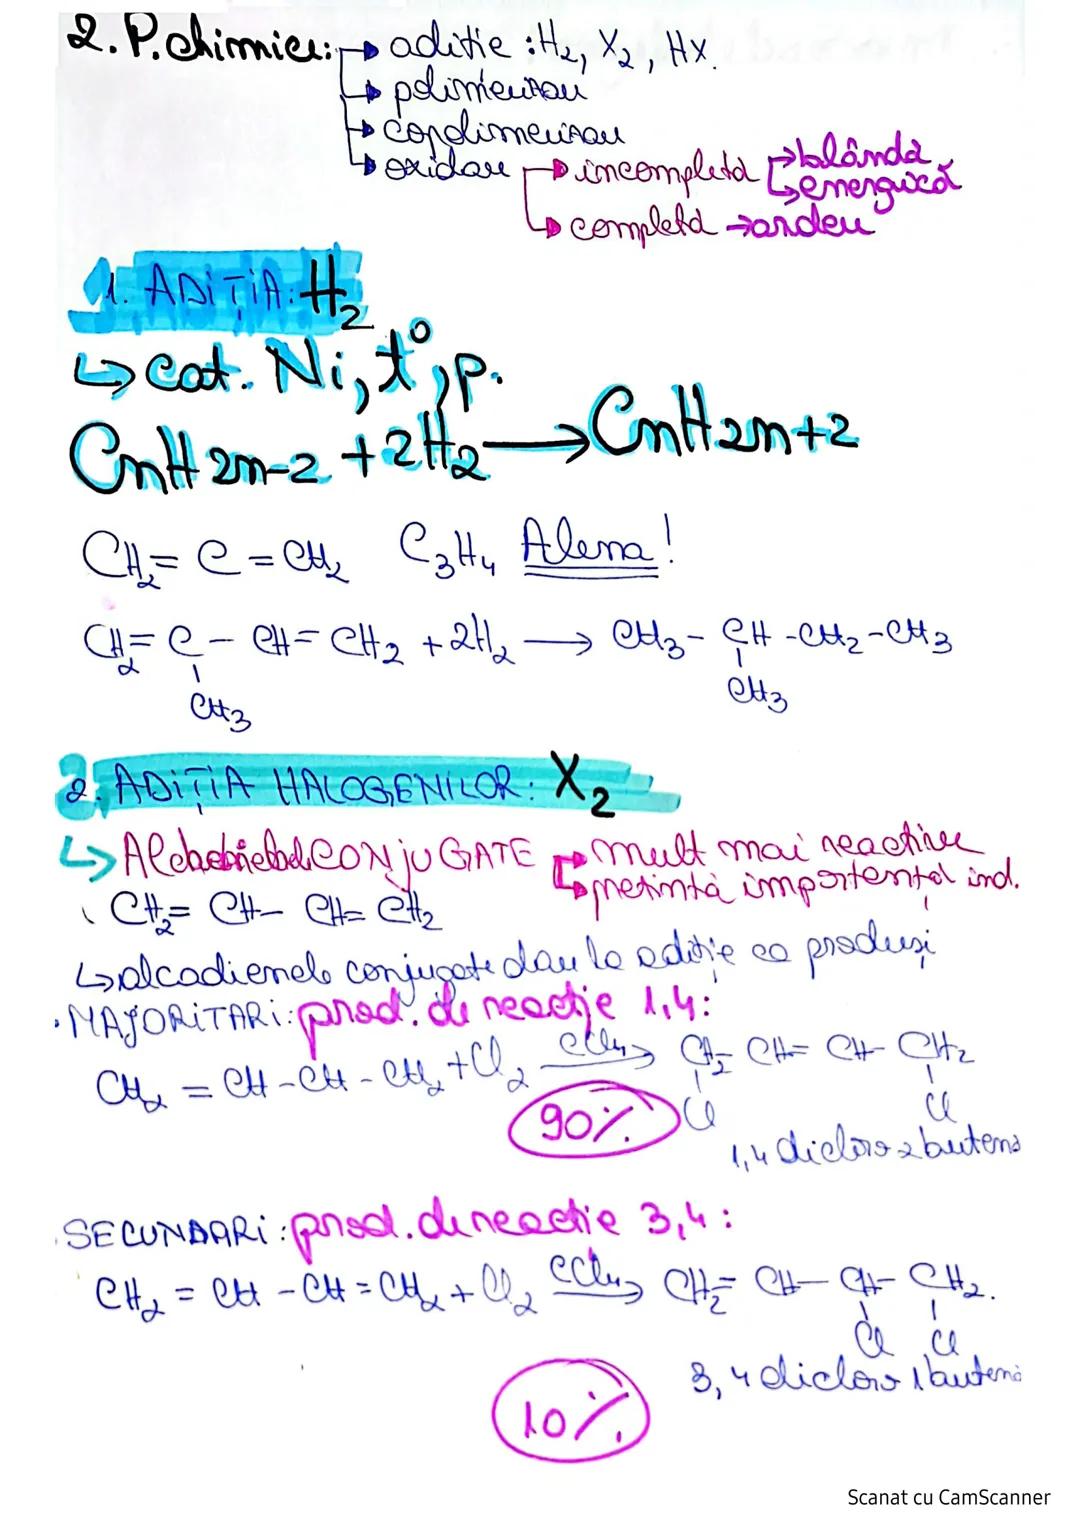 2. P. chimice: → aditie : H2, X2, HX.
→ polimerizare
→ copolimerizare
→ oxidare → incompletă → blândă
→ energică
→ completă → ardere
1. ADIȚIA: H2
↳ cat. Ni, t°, p.
CnH2n-2 + 2H2 → CnH2n+2
CH2 = C = CH2 C3H4 Alena!
CH2 = C - CH = CH2 + 2H2 → CH3 - CH - CH2 - CH3
CH3 CH3
2. ADIȚIA HALOGENILOR: X2
↳ CONJUGATE → mult mai reactive
→ prezintă importanță ind.
CH2 = CH - CH = CH2
↳ alcadienele conjugate dau la adiție ca produși
• MAJORITARI: prod. de reacție 1,4:
CH2 = CH - CH - CH2 + Cl2 CCl4→ CH2 - CH = CH - CH2
Cl Cl
90%
1,4 dicloro 2 butenă
• SECUNDARI: prod. de reactie 3,4:
CH2 = CH - CH = CH2 + Cl2 CCl4→ CH2 = CH - CH - CH2.
Cl Cl
3,4 dicloro 1 butenă
10%.
Scanat cu CamScanner